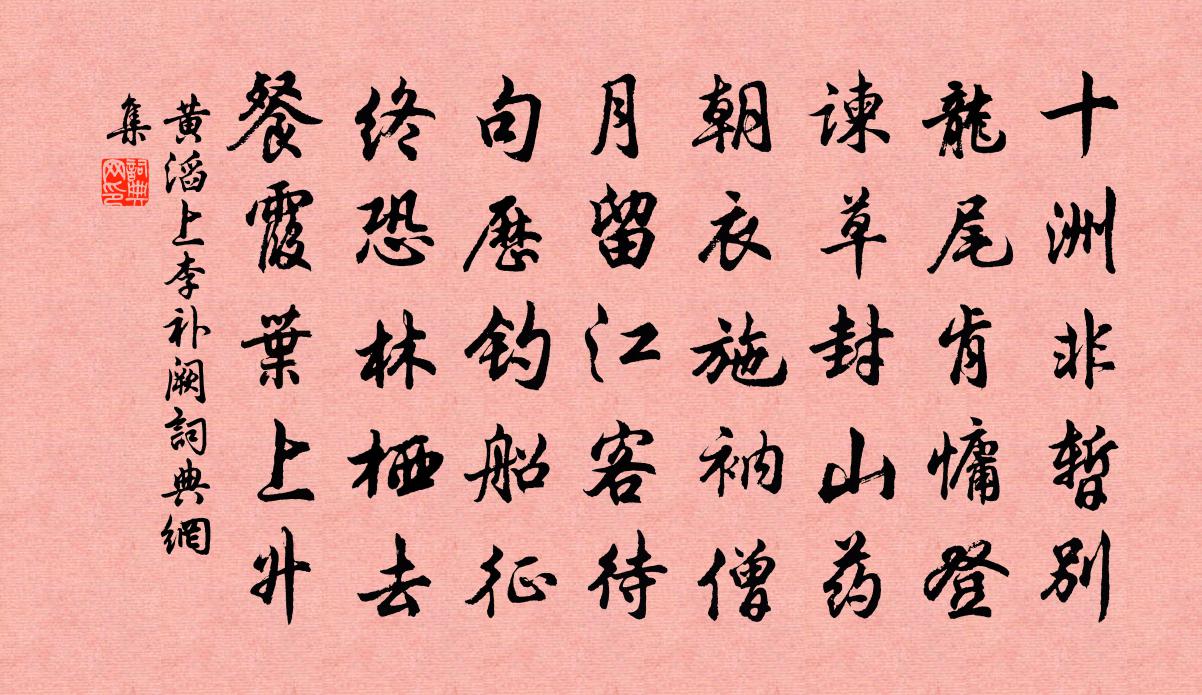 十洲非暫別
龍尾肯慵登
諫草封山药
朝衣施衲僧
月留江客待
句歷钓船征
終恐林栖去
餐霞葉上升
黄滔上李补阙詞典網
集
詞典
网印